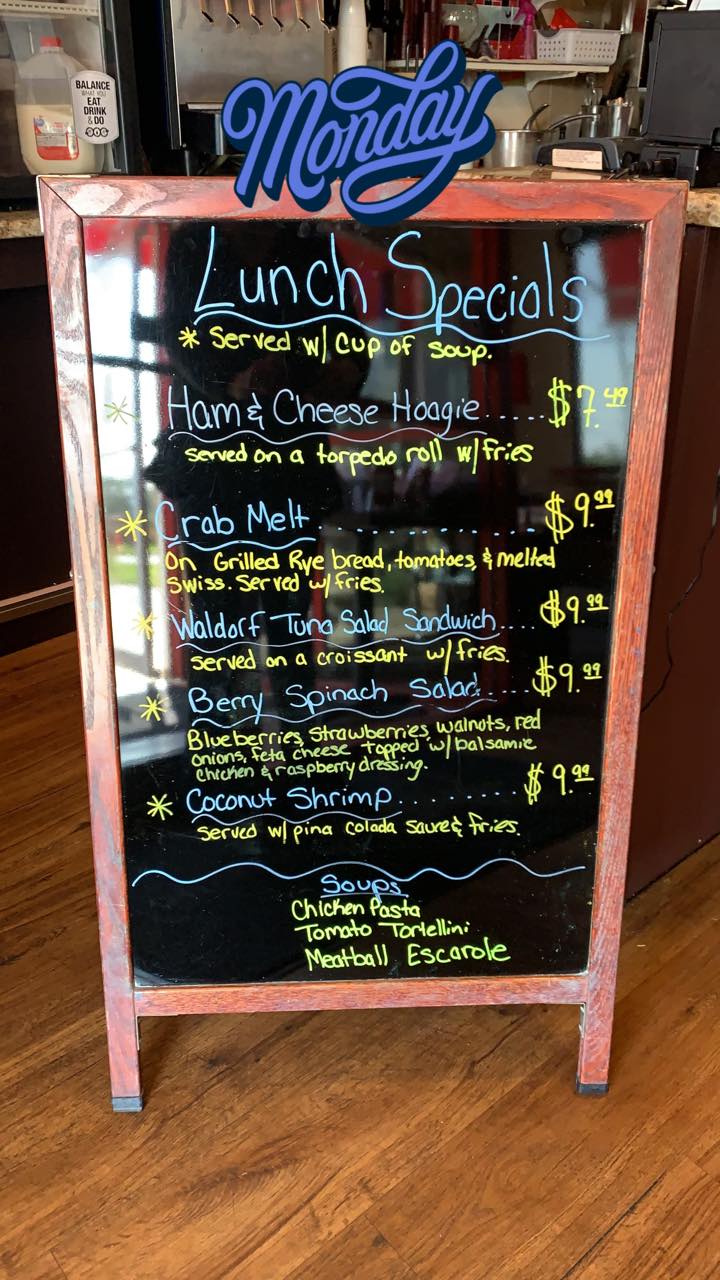 BALANCE
WHAT YOU
EAT
DRINK
& DO
Monday
Lunch Specials
* Served w/ Cup of soup.
* Ham & Cheese Hoagie..... $7.49
served on a torpedo roll w/ fries
* Crab Melt............... $9.99
On Grilled Rye bread, tomatoes, & melted
Swiss. Served w/ fries.
* Waldorf Tuna Salad Sandwich.... $9.99
served on a croissant w/ fries.
* Berry Spinach Salad.... $9.99
Blueberries, Strawberries, walnuts, red
onions, feta cheese topped w/ balsamic
chicken & raspberry dressing.
* Coconut Shrimp......... $9.99
served w/ pina colada sauce & fries.
Soups
Chicken Pasta
Tomato Tortellini
Meatball Escarole